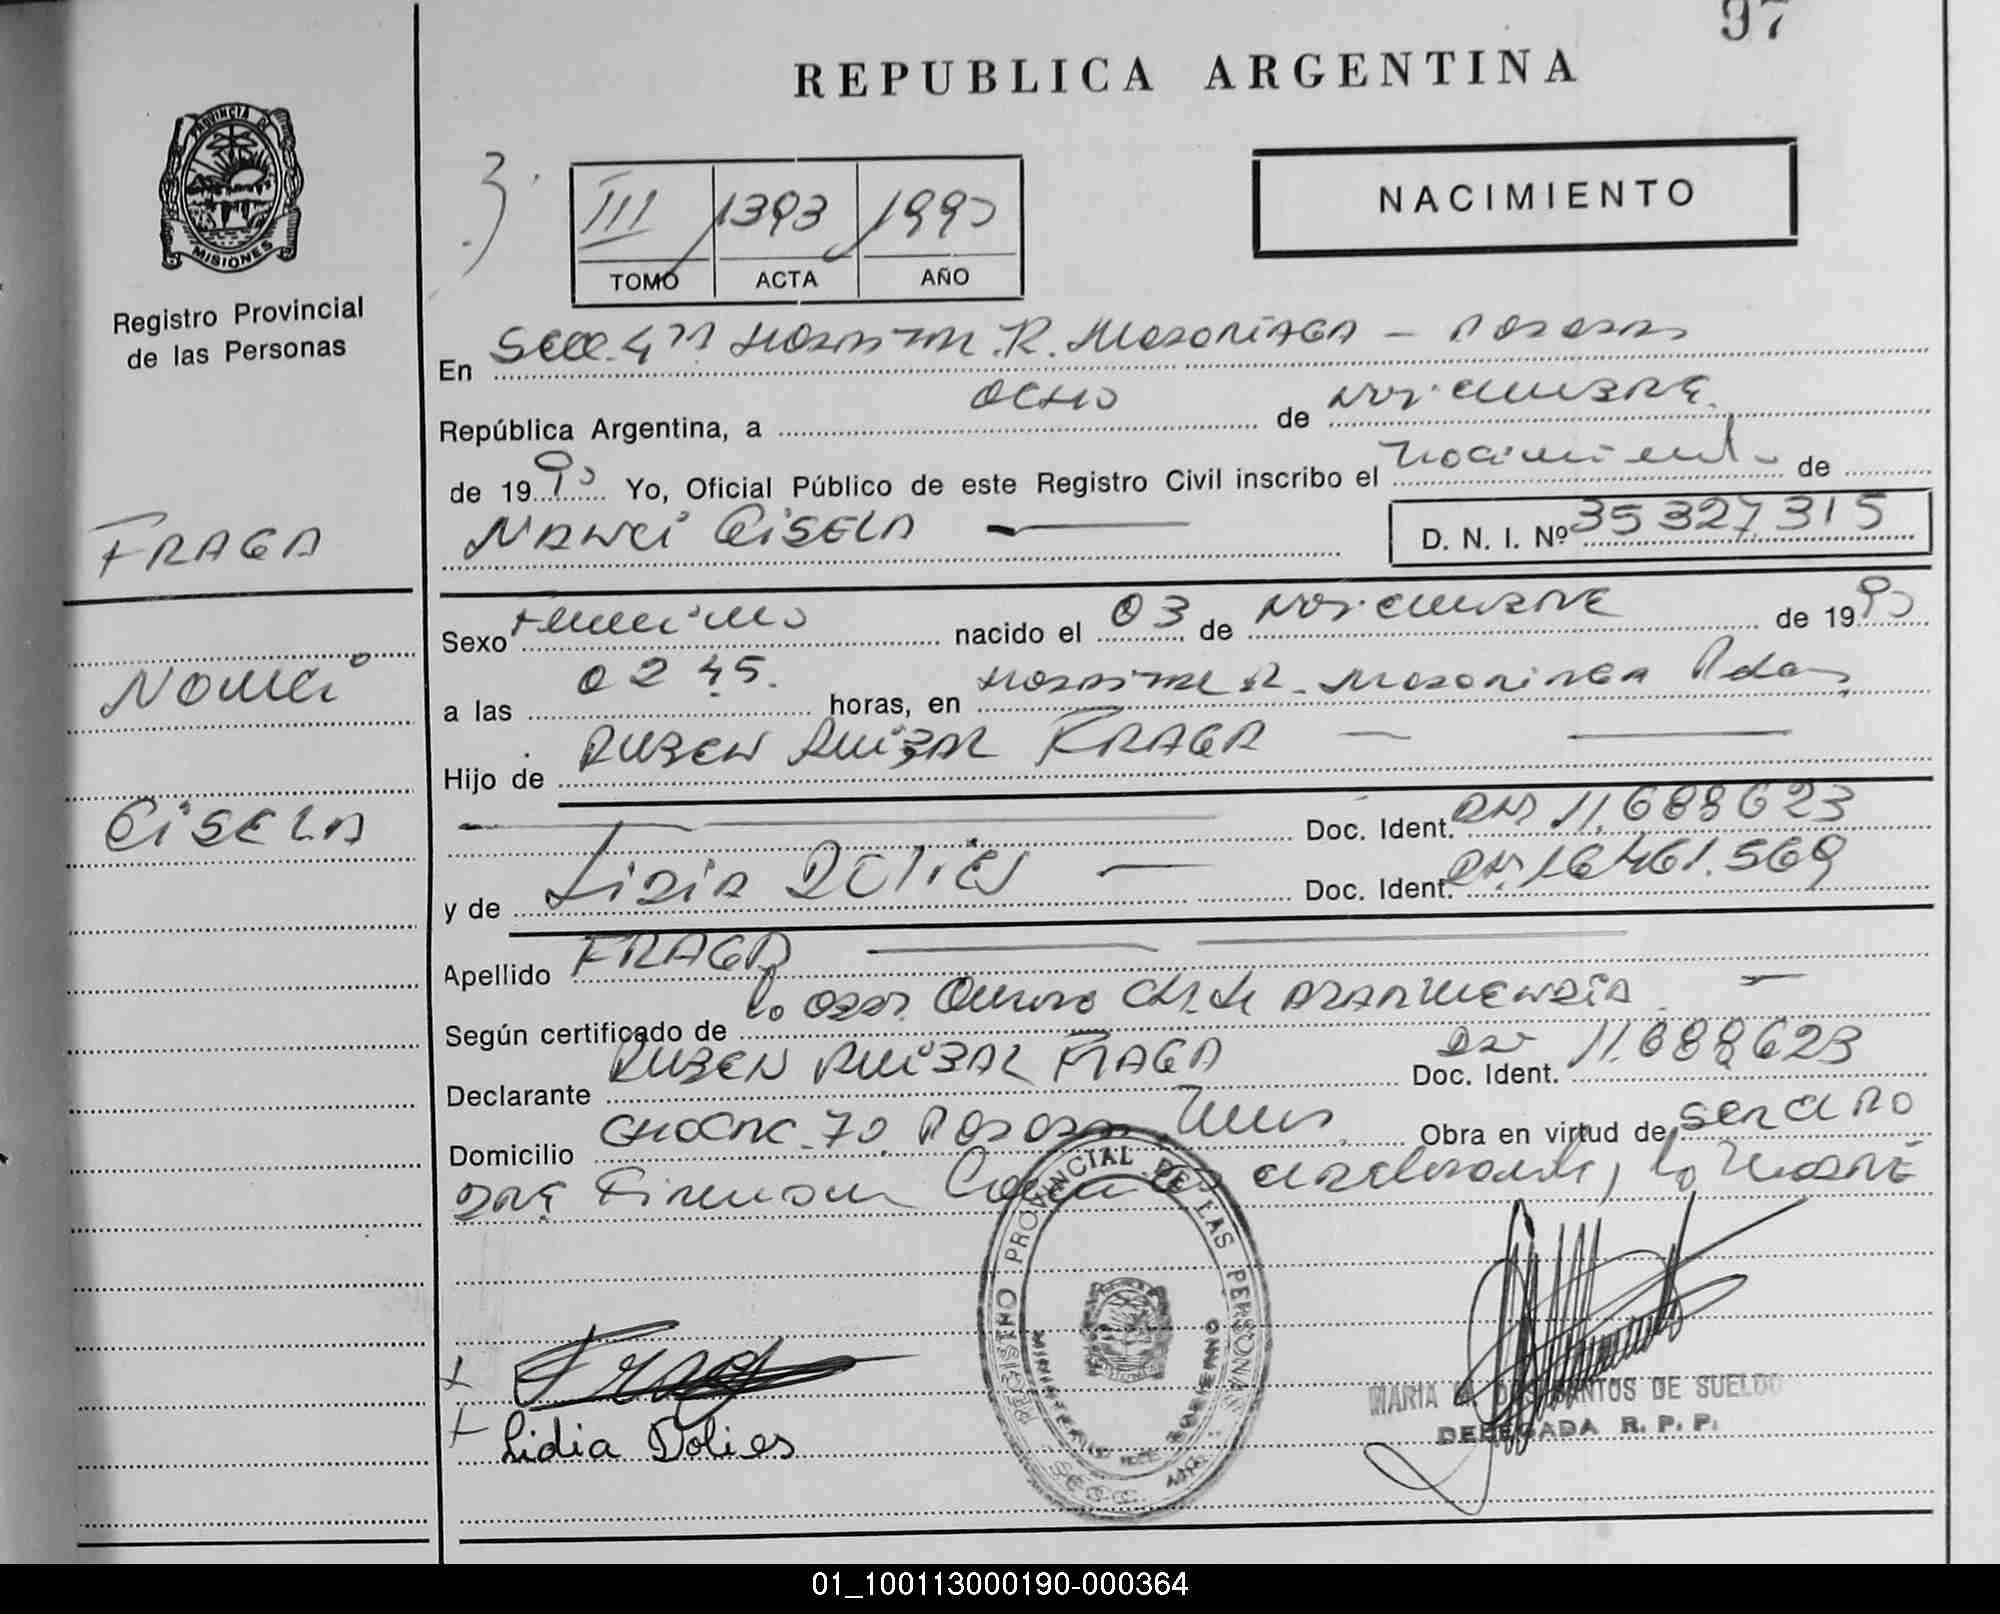 97
REPUBLICA ARGENTINA
PROVINCIA DE
MISIONES
Registro Provincial
de las Personas
NACIMIENTO
3
III 1393 1990
TOMO ACTA AÑO
En Secc. 4ta Hospital R. Madariaga - Posadas
República Argentina, a OCHO de NOVIEMBRE
de 1990 Yo, Oficial Público de este Registro Civil inscribo el nacimiento de
NANCI GISELA
D. N. I. Nº 35 327,315
FRAGA
NANCI
GISELA
Sexo Femenino nacido el 03 de NOVIEMBRE de 1990
a las 02 45. horas, en HOSPITAL R. MADARIAGA Pdas
Hijo de RUBEN ANIBAL FRAGA
Doc. Ident. DNI 11.688623
y de Lidia DOLIES Doc. Ident. DNI 16461.569
Apellido FRAGA
Según certificado de la Obst. ARARMENDIA
Declarante RUBEN ANIBAL FRAGA Doc. Ident. DNI 11.688623
Domicilio CHACRA 70 POSADAS Mnes. Obra en virtud de SER EL PA
DRE Firman como declarante, la MADRE
Fraga
Lidia Dolies
REGISTRO PROVINCIAL DE LAS PERSONAS
MINISTERIO DE GOBIERNO
MARIA DOS SANTOS DE SUELDO
DELEGADA R. P. P.
01_100113000190-000364